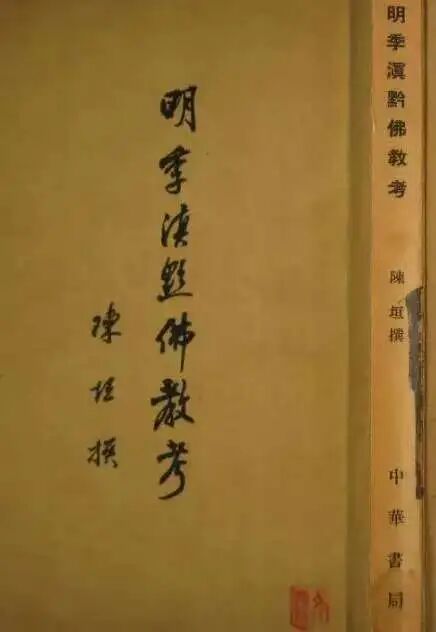 明季滇黔佛教考
陳垣撰
明季滇黔佛教考
陳垣撰
中華書局